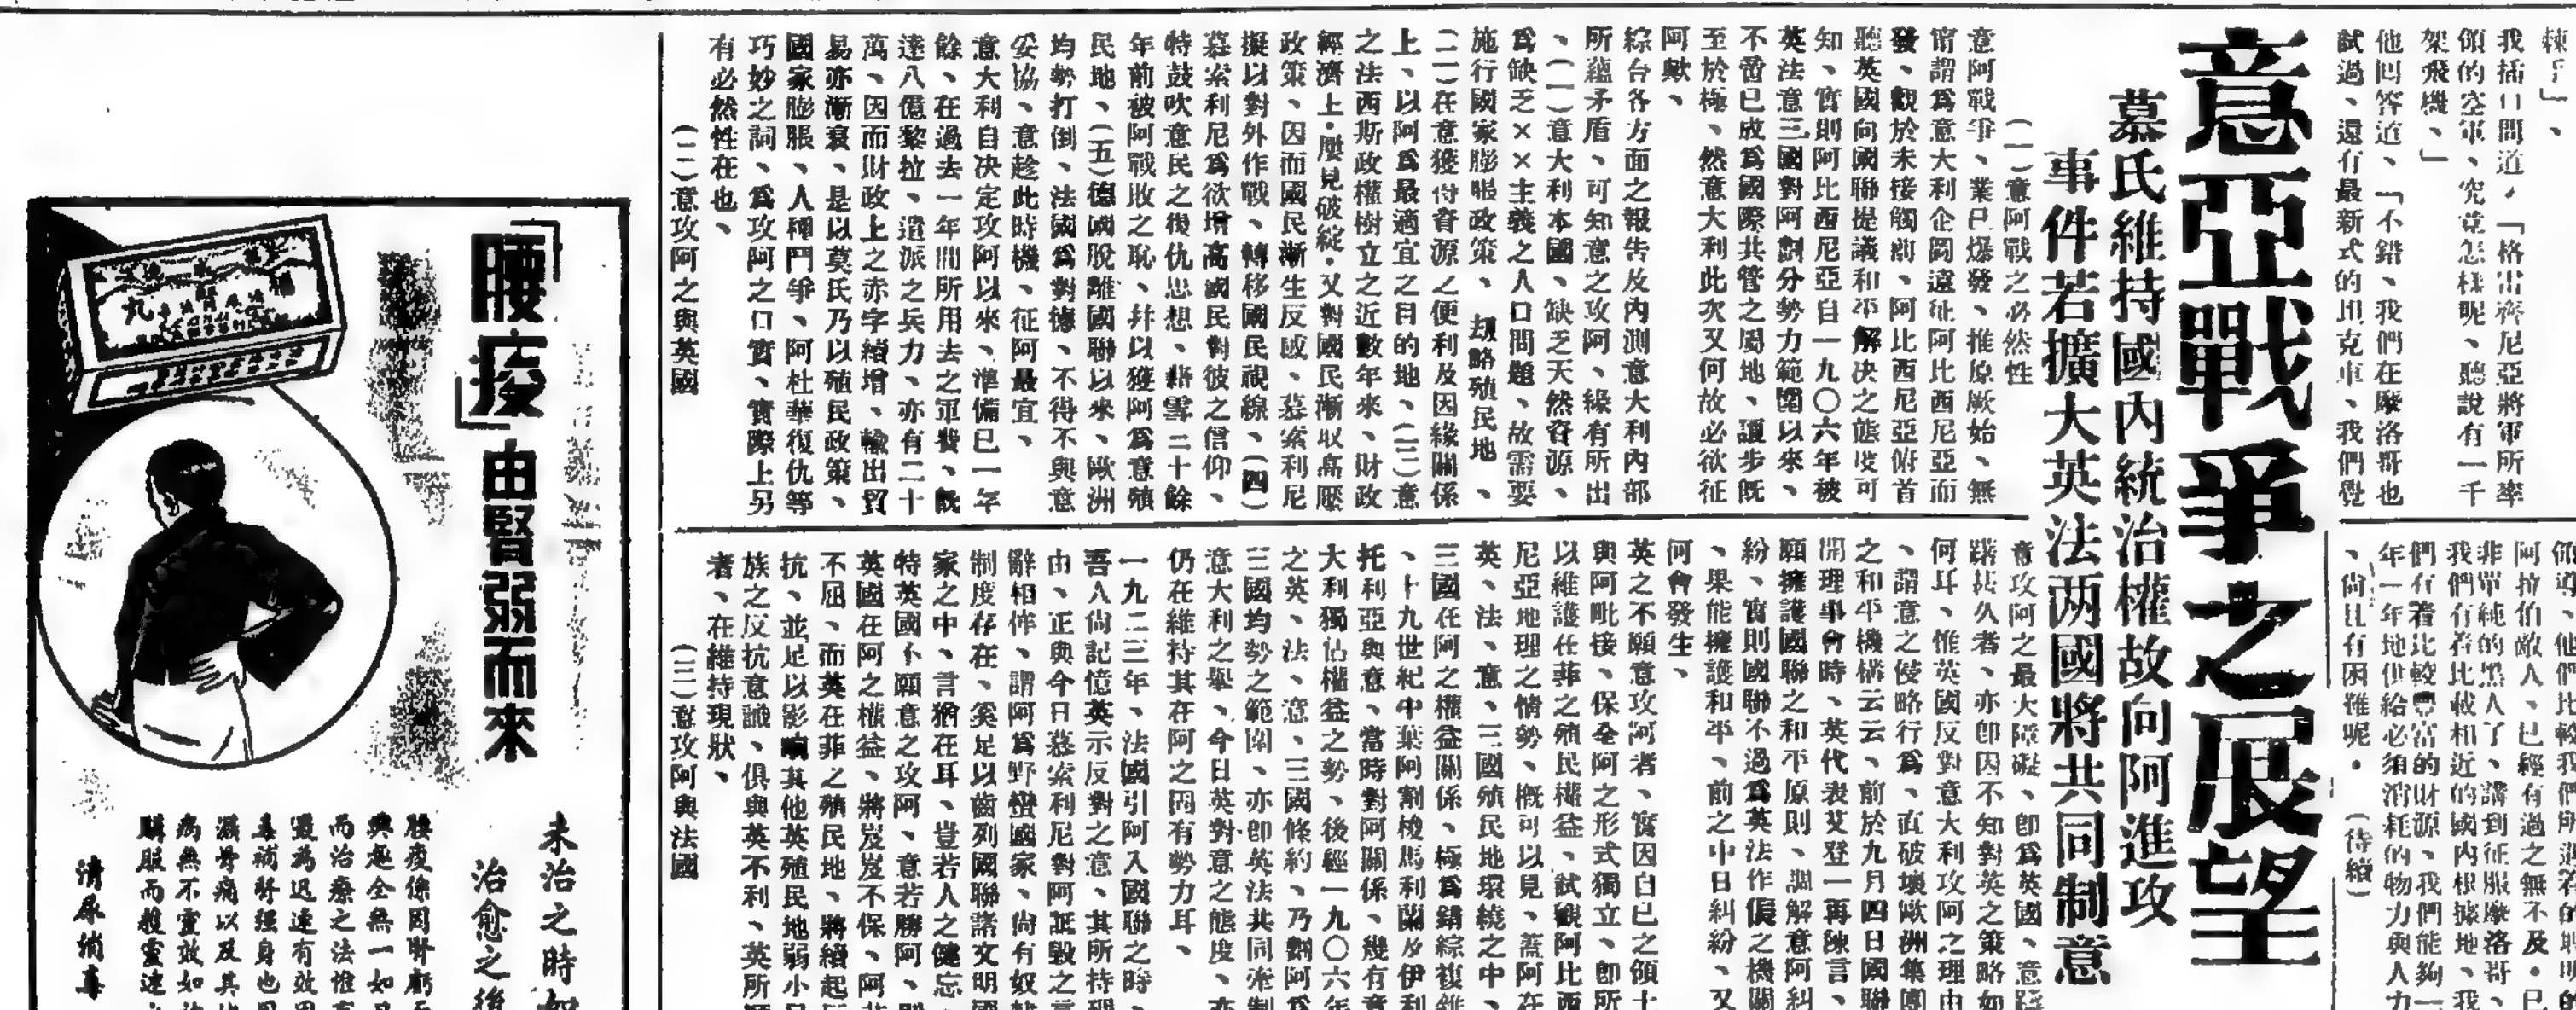 棘手」、
我插口問道、「格雷齊尼亞將軍所率
領的空軍、究竟怎樣呢、聽說有一千
架飛機、」
他回答道、「不錯、我們在摩洛哥也
試過、還有最新式的坦克車、我們覺
阿拉伯敵人、已經有過之無不及・已
非單純的黑人了、講到征服摩洛哥、
我們有着比較相近的國內根據地、我
們有着比較豐富的財源、我們能夠一
年一年地供給必須消耗的物力與人力
、尚且有困難呢・　(待續)
意亞戰爭之展望
慕氏維持國內統治權故向阿進攻
事件若擴大英法两國將共同制意
(一)意阿戰之必然性
意阿戰爭、業已爆發、推原厥始、無
甯謂爲意大利企圖遠征阿比西尼亞而
發、觀於未接觸前、阿比西尼亞俯首
聽英國向國聯提議和平解決之態度可
知、實則阿比西尼亞自一九〇六年被
英法意三國對阿劃分勢力範圍以來、
不啻已成爲國際共管之屬地、讓步旣
至於極、然意大利此次又何故必欲征
阿歟、
綜合各方面之報告及內測意大利內部
所蘊矛盾、可知意之攻阿、緣有所出
、(一)意大利本國、缺乏天然資源、
爲缺乏××主義之人口問題、故需要
施行國家膨脹政策、刼略殖民地、
(二)在意獲得資源之便利及因緣關係
上、以阿爲最適宜之目的地、(三)意
之法西斯政權樹立之近數年來、財政
經濟上・屢見破綻・又對國民漸取高壓
政策、因而國民漸生反感、慕索利尼
擬以對外作戰、轉移國民視線、(四)
慕索利尼爲欲增高國民對彼之信仰、
特鼓吹意民之復仇思想、藉雪二十餘
年前被阿戰敗之恥、幷以獲阿爲意殖
民地、(五)德國脫離國聯以來、歐洲
均勢打倒、法國爲對德、不得不與意
妥協、意趁此時機、征阿最宜、
意大利自决定攻阿以來、準備已一年
餘、在過去一年間所用去之軍費、旣
達八億黎拉、遣派之兵力、亦有二十
萬、因而財政上之赤字續增、輸出貿
易亦漸衰、是以莫氏乃以殖民政策、
國家膨脹、人種鬥爭、阿杜華復仇等
巧妙之詞、爲攻阿之口實、實際上另
有必然性在也、
(二)意攻阿之與英國
意攻阿之最大障礙、卽爲英國、意躊
躇甚久者、亦卽因不知對英之策略如
何耳、惟英國反對意大利攻阿之理由
、謂意之侵略行爲、直破壞歐洲集團
之和平機構云云、前於九月四日國聯
開理事會時、英代表艾登一再陳言、
願擁護國聯之和平原則、調解意阿糾
紛、實則國聯不過爲英法作倀之機關
、果能擁護和平、前之中日糾紛、又
何會發生、
英之不願意攻阿者、實因自已之領土
與阿毗接、保全阿之形式獨立、卽所
以維護在菲之殖民權益、試觀阿比西
尼亞地理之情勢、槪可以見、蓋阿在
英、法、意、三國殖民地環繞之中、
三國在阿之權益關係、極爲錯綜複雜
、十九世紀中葉阿割梭馬利蘭及伊利
托利亞與意、當時對阿關係、幾有意
大利獨佔權益之勢、後經一九〇六年
之英、法、意、三國條約、乃劃阿爲
三國均勢之範圍、亦卽英法共同牽制
意大利之舉、今日英對意之態度、亦
仍在維持其在阿之固有勢力耳、
一九二三年、法國引阿入國聯之時、
吾人尙記憶英示反對之意、其所持理
由、正與今日慕索利尼對阿詆毀之言
辭相侔、謂阿爲野蠻國家、尙有奴隸
制度存在、奚足以齒列國聯諸文明國
家之中、言猶在耳、豈若人之健忘、
特英國不願意之攻阿、意若勝阿、則
英國在阿之權益、將岌岌不保、阿若
不屈、而英在菲之殖民地、將續起反
抗、並足以影響其他英殖民地弱小民
族之反抗意識、俱與英不利、英所願
者、在維持現狀、
(三)意攻阿與法國
「腰痠」由腎弱而來
未治之時
治愈之後
腰痠係因腎虧
興趣全無一如
而治療之法惟
最為迅速有效
毒補腎强身也
濕骨痛以及其
病無不靈效如
購服而獲靈速
清尿消毒